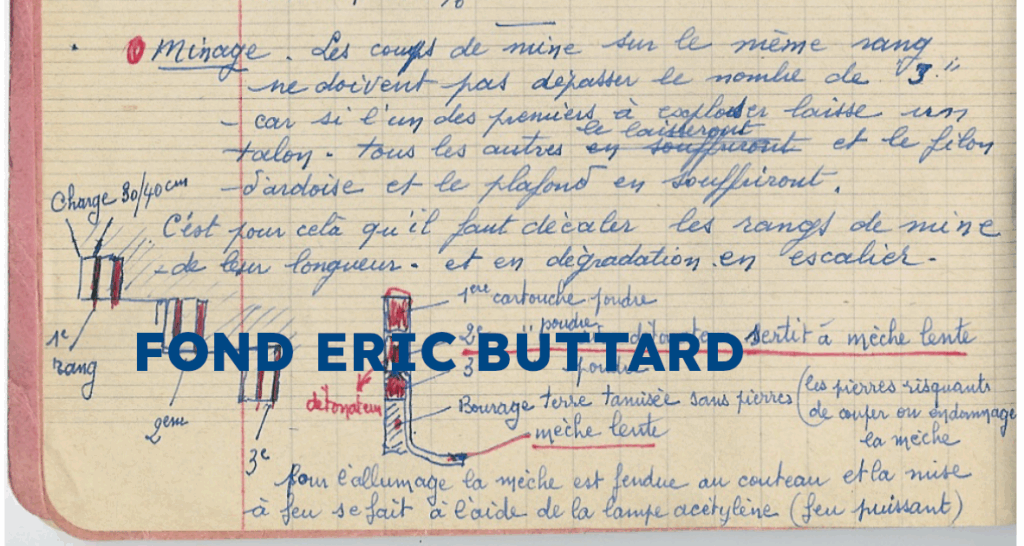 Minage. Les coups de mine sur le même rang
ne doivent pas dépasser le nombre de "3."
- car si l'un des premiers à exploser laisse un
le laisseront
talon - tous les autres en souffriront et le filon
- d'ardoise et le plafond en souffriront.
Charge 30/40 cm
C'est pour celà qu'il faut décaler les rangs de mine
- de leur longueur - et en dégradation en escalier -
1e
rang
2ème
3e
1ere cartouche poudre
poudre
2e détonateur sertit à mèche lente
FOND ERIC BUTTARD
3 poudre
détonateur
Bourage terre tamisée sans pierres (les pierres risquants
de couper ou endommage
la mèche
mèche lente
Pour l'allumage la mèche est fendue au couteau et la mise
- à feu se fait à l'aide de la lampe acétylène (feu puissant)